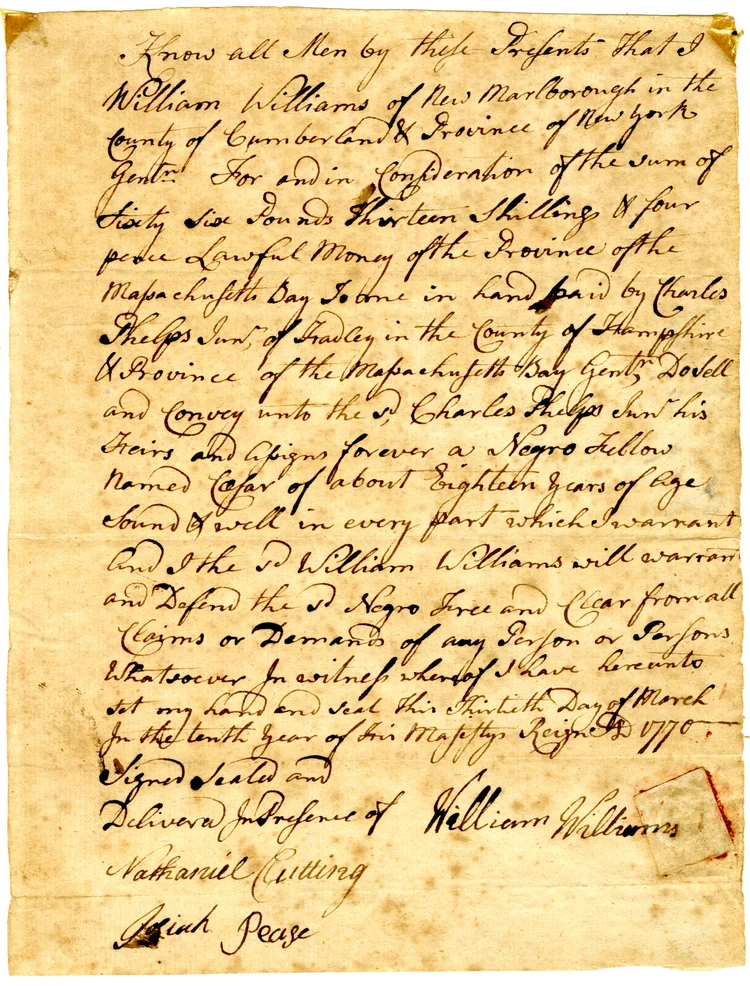 Know all Men by these Presents That I
William Williams of New Marlborough in the
County of Cumberland & Province of New York
Gentn. For and in Consideration of the sum of
Sixty six Pounds Thirteen Shillings & four
pence Lawful Money of the Province of the
Massachusetts Bay To me in hand paid by Charles
Phelps Junr, of Hadley in the County of Hampshire
& Province of the Massachusetts Bay Gentn, Do sell
and Convey unto the sd, Charles Phelps Junr his
Heirs and Assigns forever a Negro Fellow
Named Cesar of about Eighteen Years of Age
Sound & well in every part which I warrant
And I the sd William Williams will warrant
and Defend the sd Negro Free and Clear from all
Claims or Demands of any Person or Persons
Whatsoever In witness whereof I have hereunto
set my hand and seal this Thirtieth Day of March
In the tenth Year of His Majestys Reign AD 1770.
Signed Sealed and
Delivered In Presence of William Williams
Nathaniel Cutting
Josiah Pease